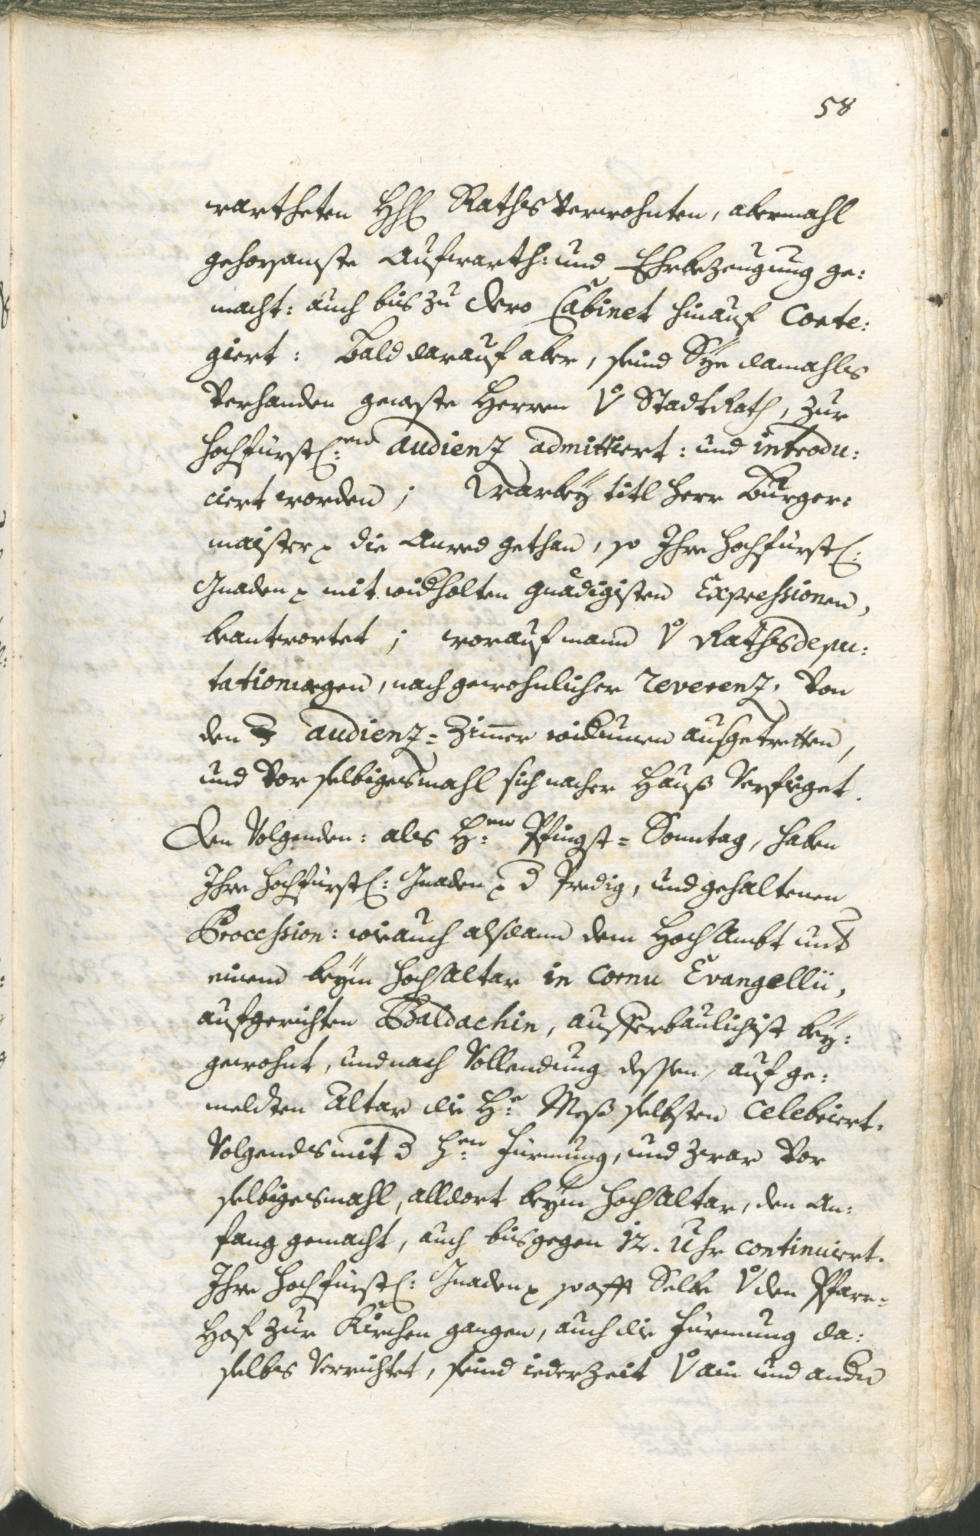 58
wartheten HH. Raths Verwohnten, abermahl
gehorsamste Aufwarth: und Ehrbezeugung ge:
macht: auch bis zu dero Cabinet hinauf Corte:
giert: Bald darauf aber, seind Sye damahls
Verhanden geweste Herren V StadtRath, zur
hochfürstl:en audienz admittiert: und introdu:
ciert worden; Warbey titl Herr Burger:
maister die Anred gethan, so Ihre hochfürstl:
Gnaden mit widholten gnädigisten Expressionen,
beantwortet; worauf mann V Rathsdepu:
tationwegen, nach gewohnlicher reverenz, Von
den audienz=Zimer widrumen ausgetretten,
und Vor selbigesmahl sich nacher Hauß Verfüget.
Den Volgenden: als H:en Pfingst=Sonntag, haben
Ihre hochfürstl: Gnaden d Predig, und gehaltenen
Procession: wie auch alsdann dem HochAmbt mit
einem beym HochAltar in Cornu Evangellii,
aufgerichten Baldachin, ausserbaulichist bey:
gewohnt, und nach Vollendung dessen, auf ge:
meldten Altar die H:e Meß selbsten celebriert.
Volgends mit d H:en Fürmung, und zwar Vor
selbigesmahl, alldort beym HochAltar, den An:
fang gemacht, auch bis gegen 12. Uhr continuiert.
Ihre hochfürstl: Gnaden so offt Selbe V den Pfarr=
Hof zur Kirchen gangen, auch die Fürmung da:
selbs Verrichtet, seind iederzeit V ain und andn